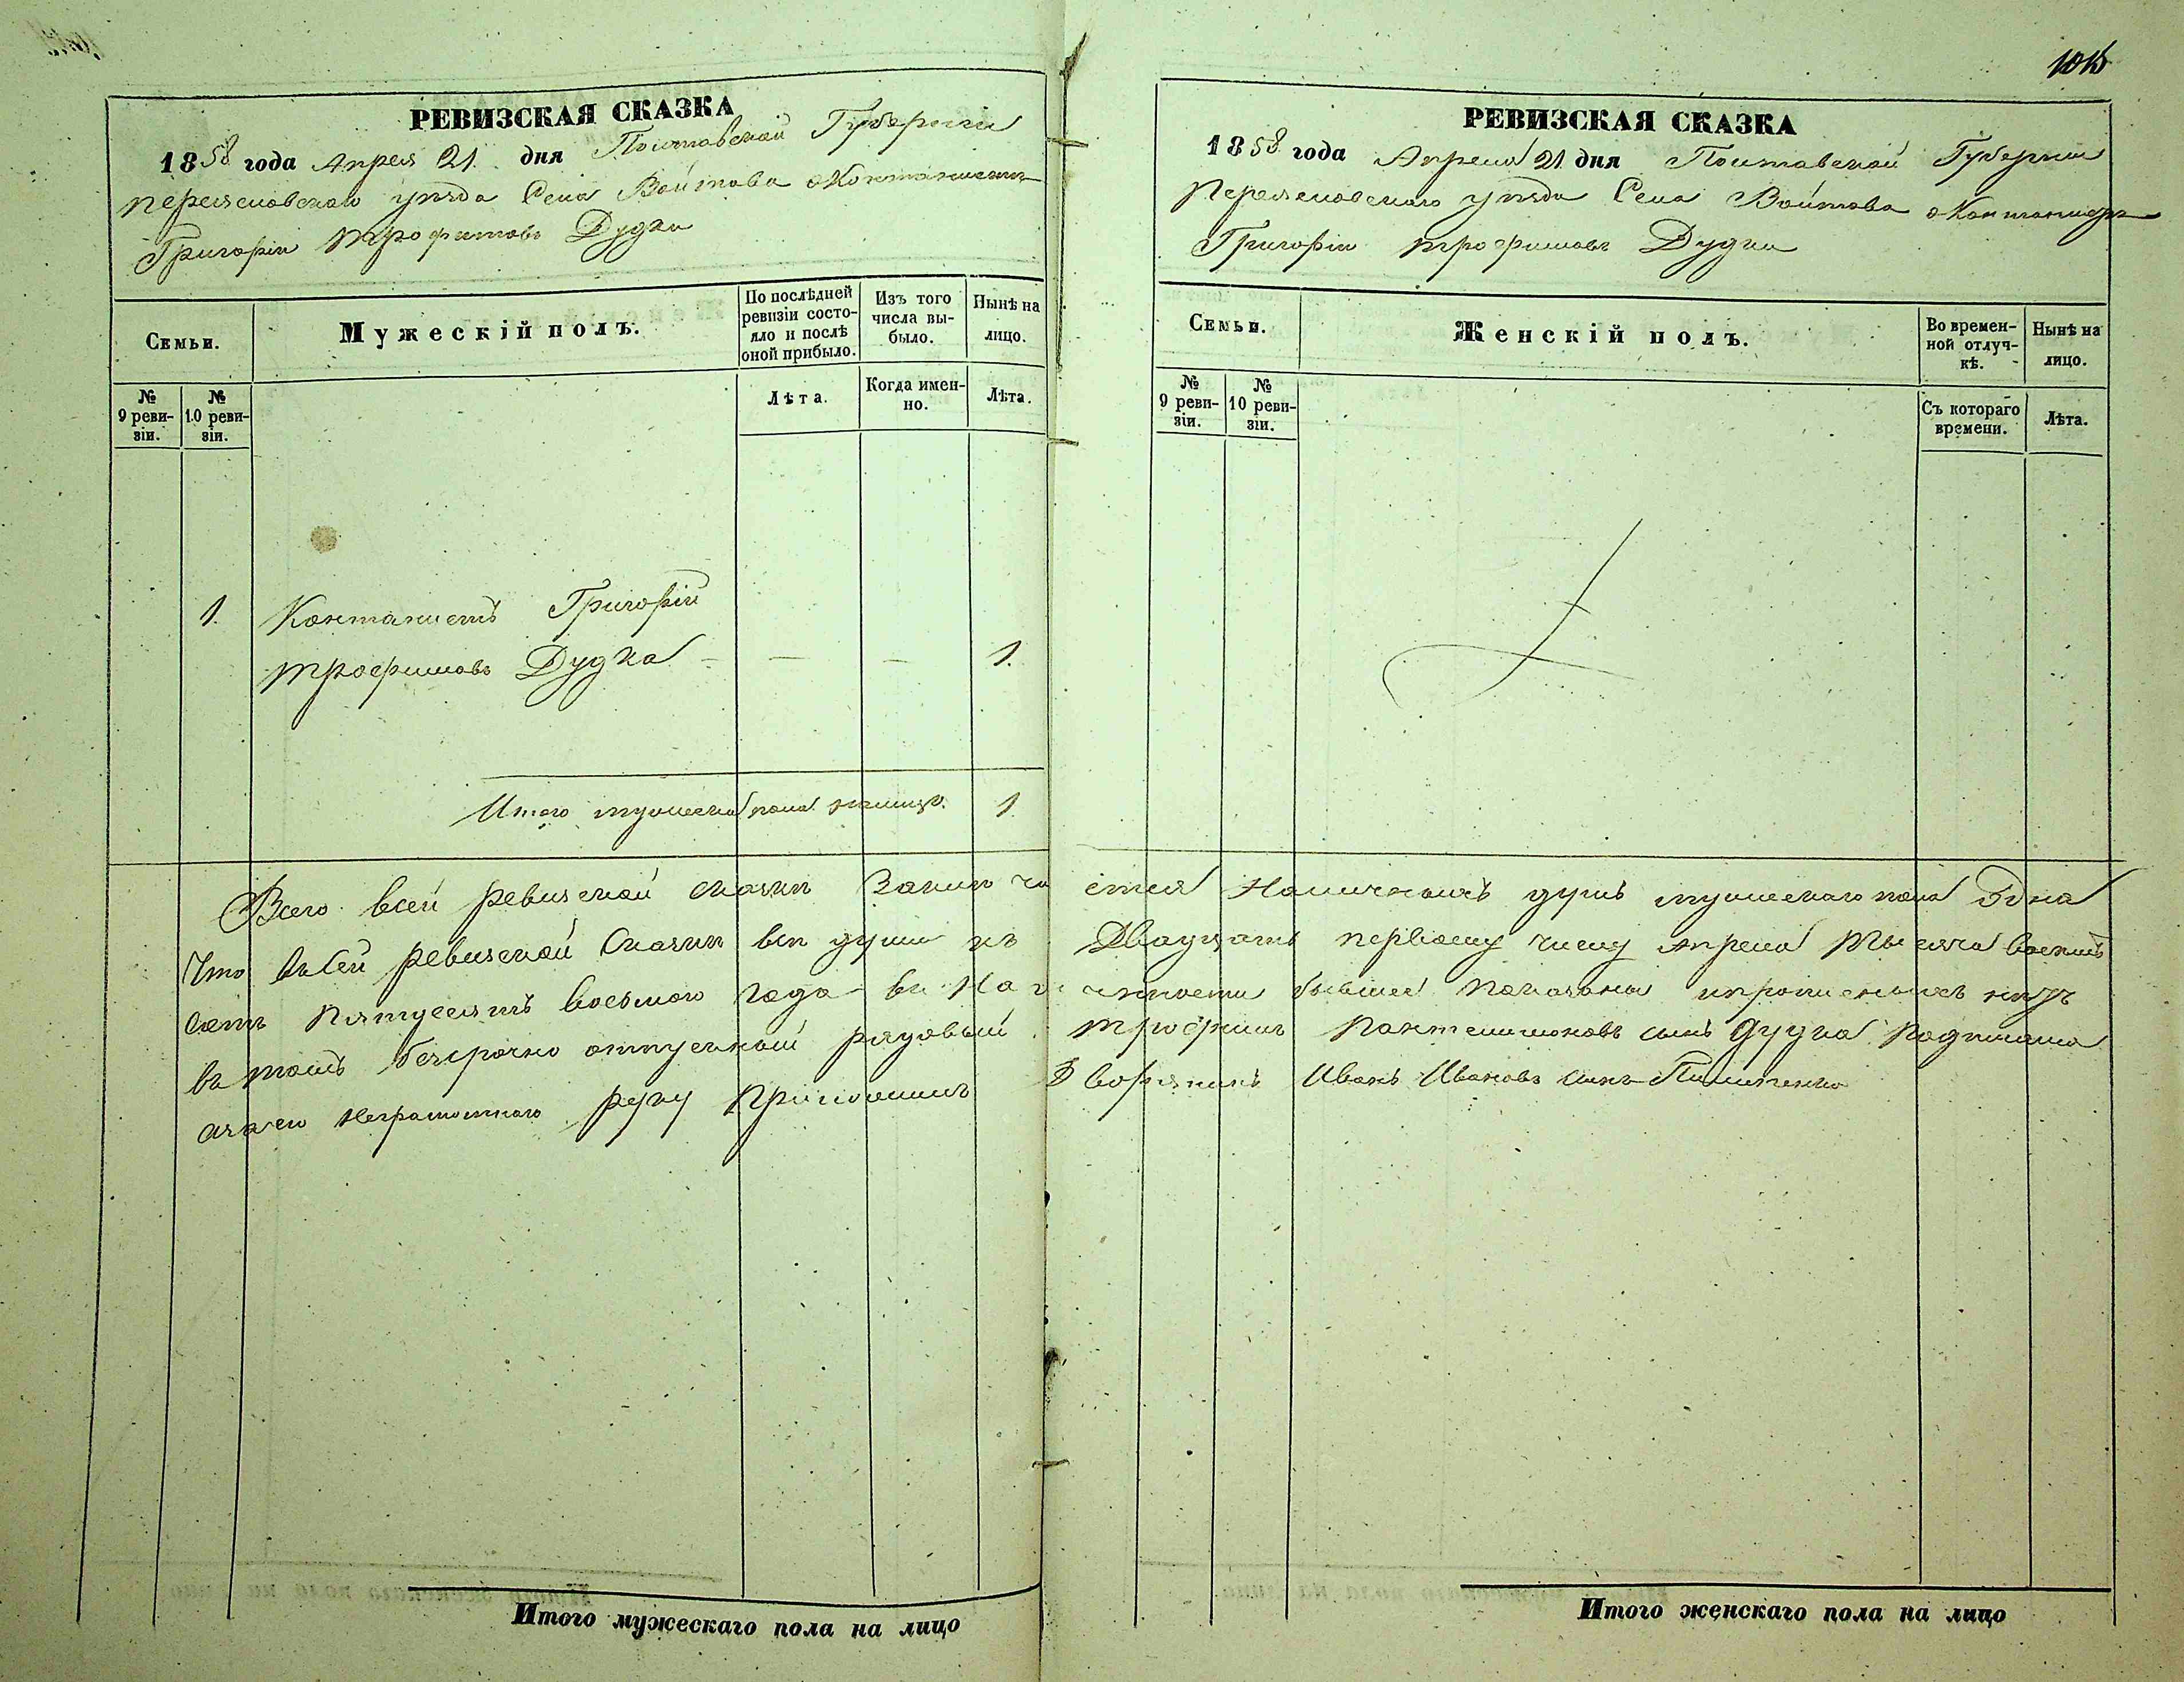 1015
РЕВИЗСКАЯ СКАЗКА
1858 года Апреля 21 дня Полтавской Губернии
Переяславского уезда Села Войтова оКонтонисте
Григоріи трофимовъ Дудки
Семьи.
Мужескій полъ.
По послѣдней ревизіи состояло и послѣ оной прибыло.
Изъ того числа выбыло.
Нынѣ на лицо.
№ 9 ревизіи.
№ 10 ревизіи.
Лѣта.
Когда именно.
Лѣта.
1. Контонистъ Григорій
трофимовъ Дудка — — 1.
Итого мужеска пола налицо. 1
РЕВИЗСКАЯ СКАЗКА
1858 года Апреля 21 дня Полтавской Губернии
Переяславского уезда Села Войтова оКонтонисте
Григоріи трофимовъ Дудки
Семьи.
Женскій полъ.
Во временной отлучкѣ.
Нынѣ на лицо.
№ 9 ревизіи.
№ 10 ревизіи.
Съ котораго времени.
Лѣта.
Всего всей ревизской сказки Заключается Наличныхъ душъ мужескаго пола Одна
Что въсей ревизской Сказки все души къ Двадцать первому числу апреля Тысяча восемь
сотъ пятдесятъ восьмого года въ Наличности бывшее показаны
въ томъ безсрочно отпускной рядовый трофимъ Пантелимоновъ сынъ Дудка
неграмотного руку Приложилъ Дворянинъ Иванъ Ивановъ сынъ
Итого мужескаго пола на лицо
Итого женскаго пола на лицо